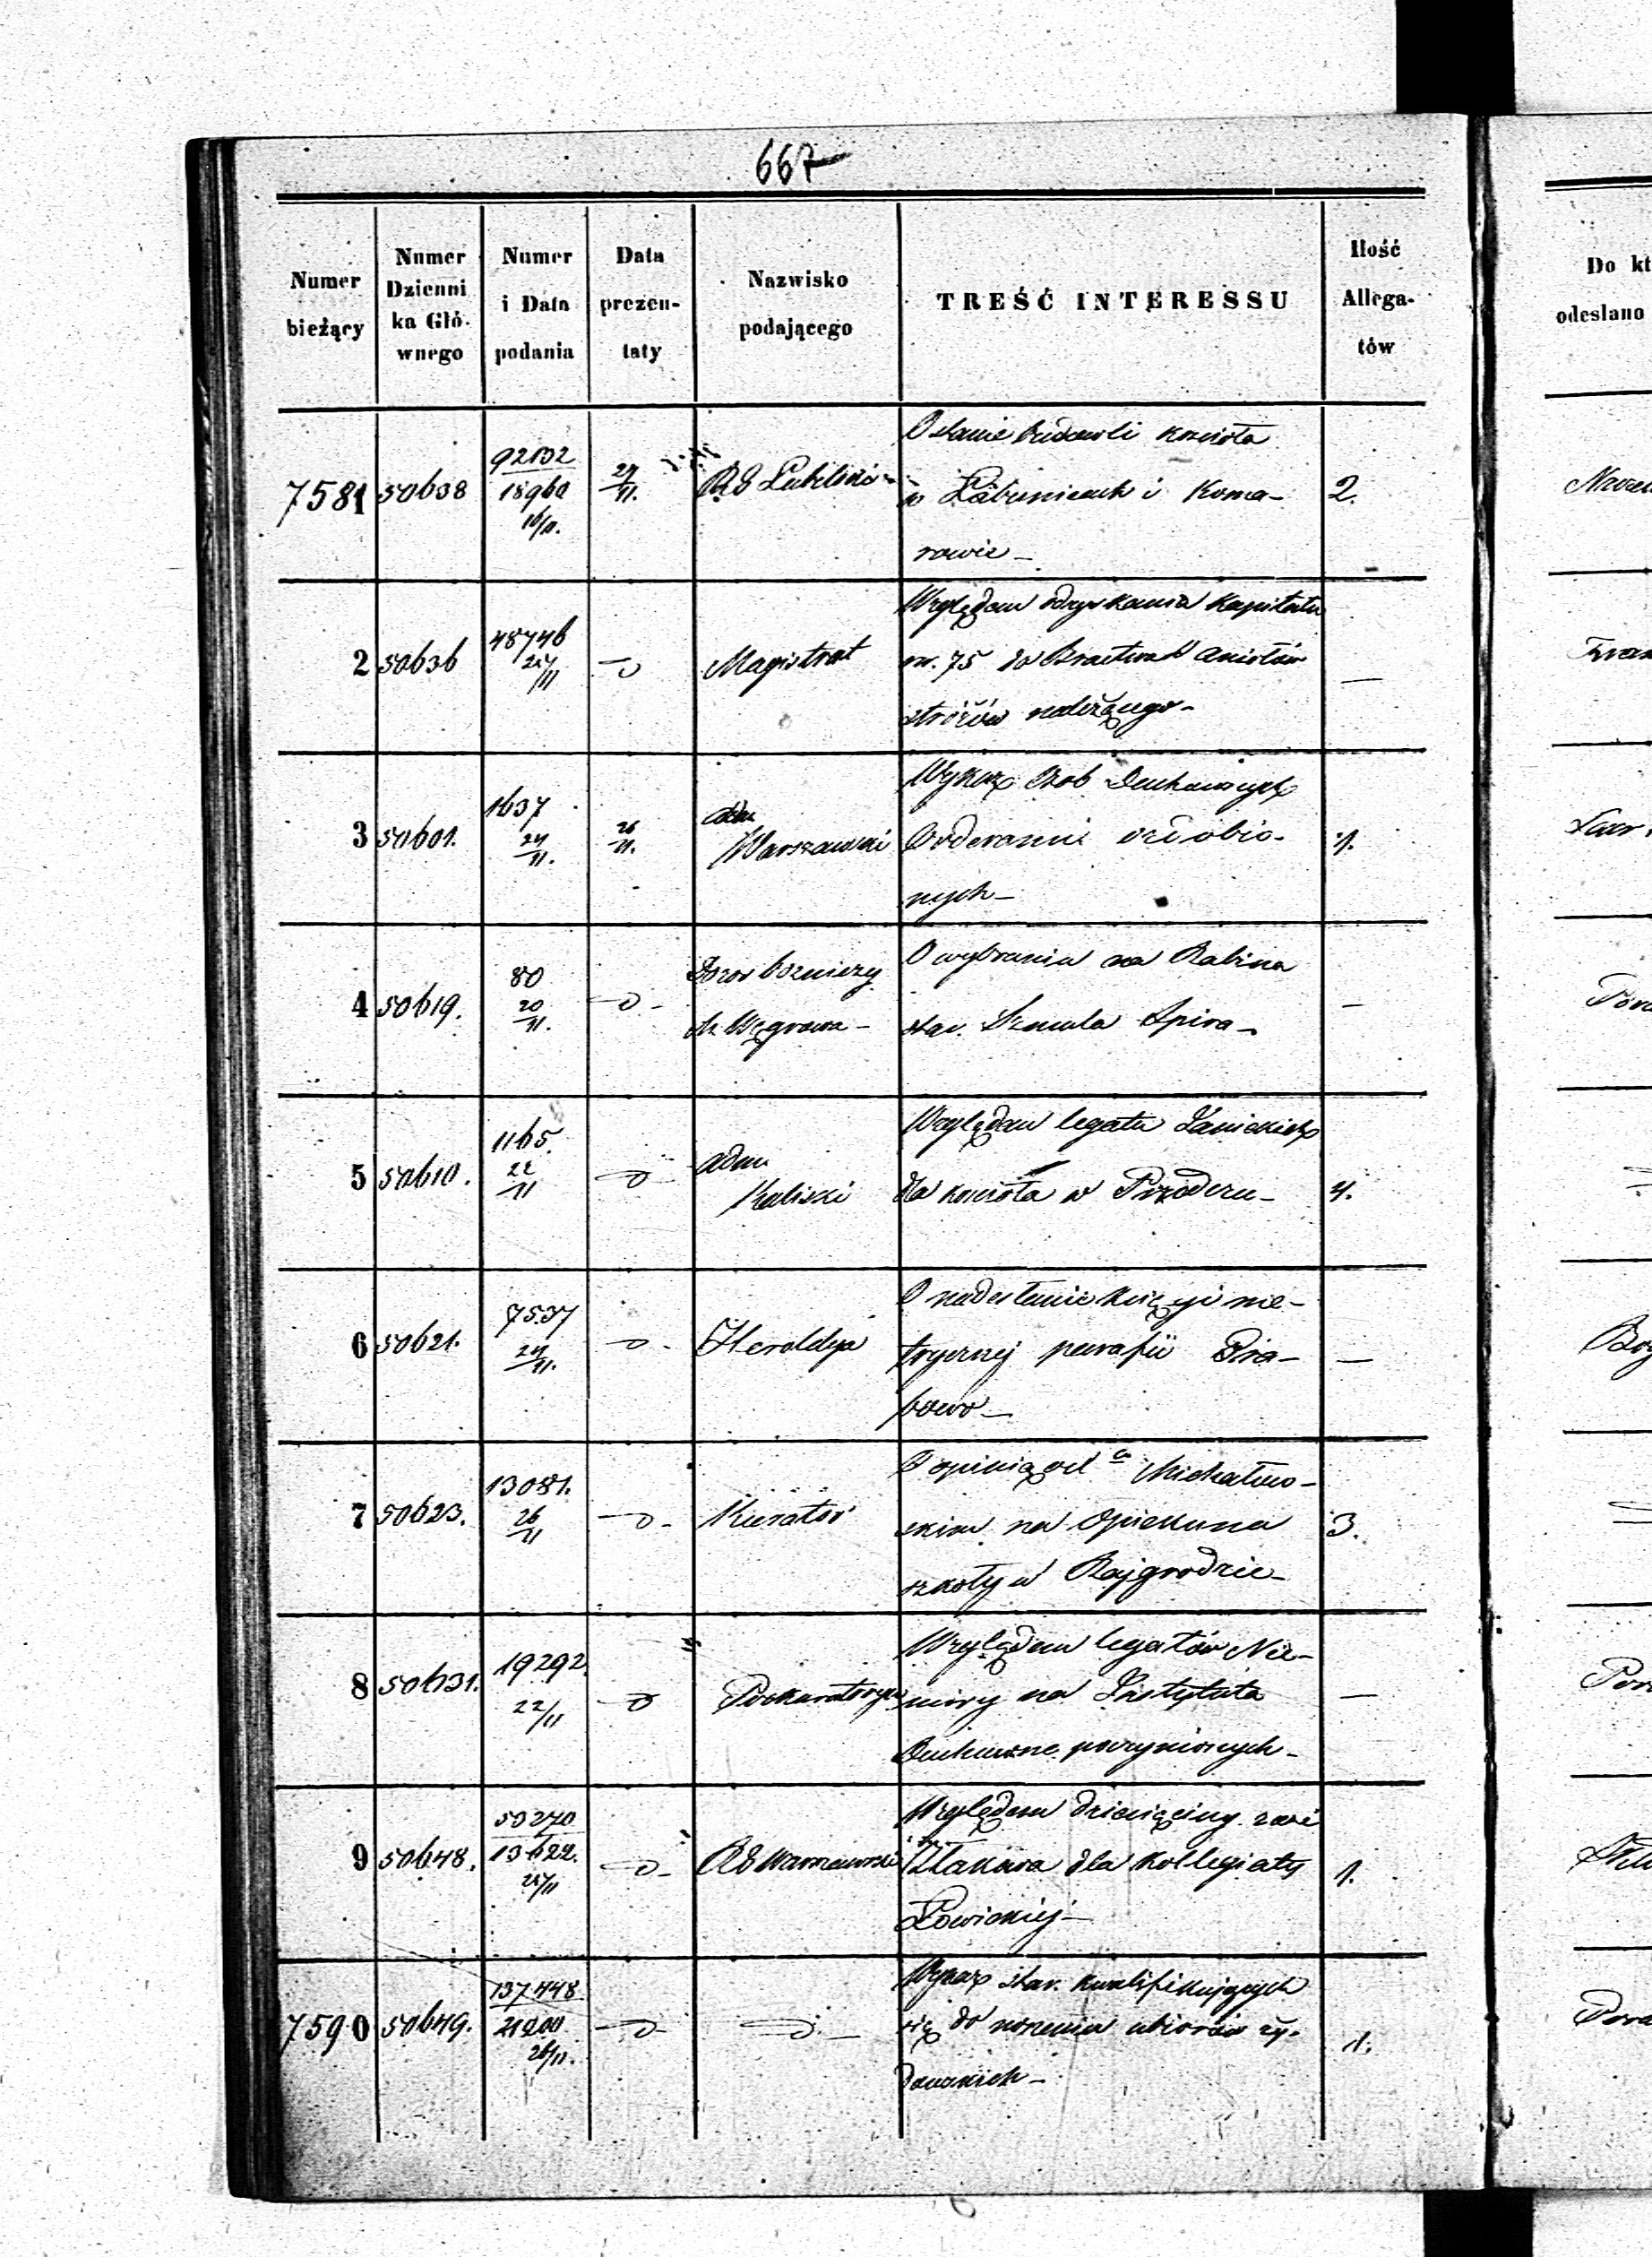 667
Numer bieżący
Numer Dzienni ka Głó- wnego
Numer i Data podania
Data prezen- taty
Nazwisko podającego
TREŚĆ INTERESSU
Ilość Allega- tów
Do kt
odesłano
7581 50638 92132 18960 16/11. 27/11. RG Lubelski
O stanie budowli kościoła
w Łabuniach i Koma-
rowie - 2.
2 50636 48746 24/11 Magistrat
Względem odzyskania kapitału
rs. 75 do Bractwa Aniołów
stróżów należącego - —
3 50601. 1637 24/11. 26/11. Adm Warszawski
Wykaz Osób Duchownych
Orderami ozdobio-
nych - 1.
4 50619. 80 20/11. Dozor bożniczy M. Węgrowa -
O wybraniu na Rabina
star. Szmula Spira - —
5 50610. 1165. 22/11 Adm Kaliski
Względem legatu
dla kościoła w - 4.
6 50621. 7537 24/11. Heroldya
O nadesłanie księgi me-
trycznej parafii Gra-
bowo - —
7 50623. 13081. 26/11 Kurator
O opinię od Michałow-
skim na Opiekuna
szkoły w Rajgrodzie - 3.
8 50631. 19292. 22/11 Prokuratorya
Względem legatów Nie-
miery na Instytuta
Duchowne poczynionych - —
9 50648. 53270 13622. 24/11 RG Warszawski
Względem dziesięciny z wsi
Złakowa dla kollegiaty
Łowickiej - 1.
7590 50649. 137448 21200 26/11.
Wykaz star. kwalifikujących
się do noszenia ubiorów ży-
dowskich - 1.